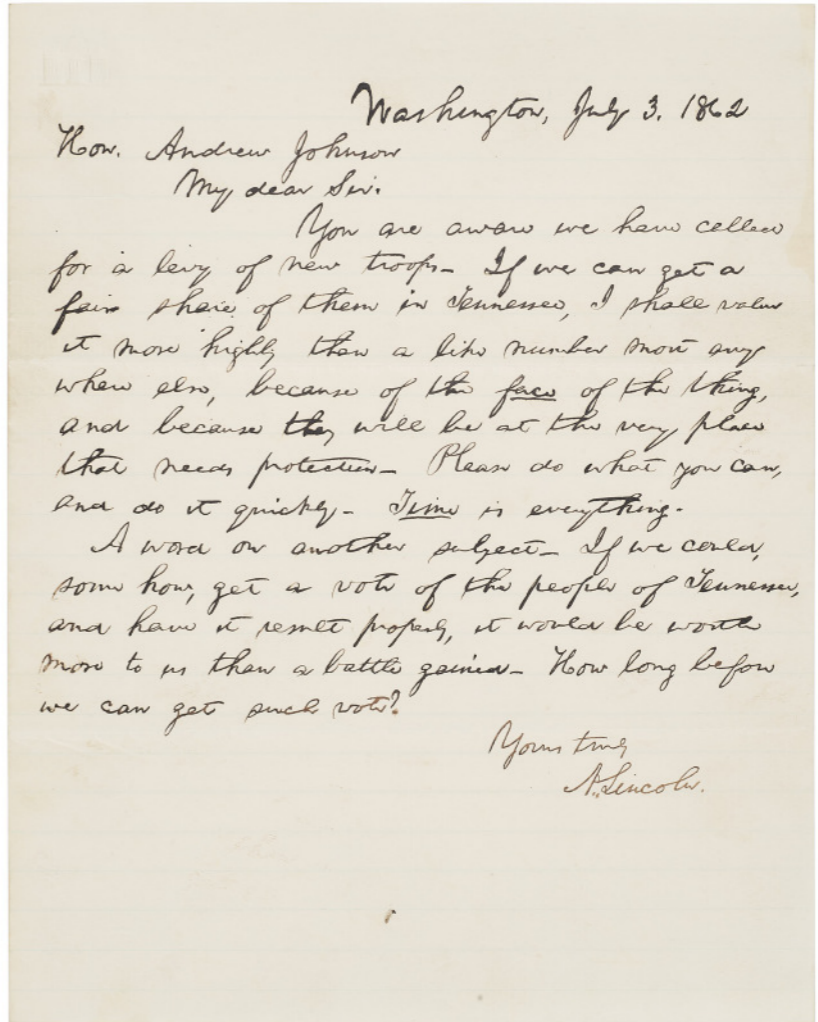 Washington, July 3. 1862
Hon. Andrew Johnson
My dear Sir.
You are aware we have called
for a levy of new troops— If we can get a
fair share of them in Tennessee, I shall value
it more highly than a like number most any
where else, because of the face of the thing,
and because they will be at the very place
that needs protection— Please do what you can,
and do it quickly— Time is everything.
A word on another subject— If we could,
some how, get a vote of the people of Tennessee,
and have it result properly, it would be worth
more to us than a battle gained— How long before
we can get such vote?
Yours truly
A. Lincoln.